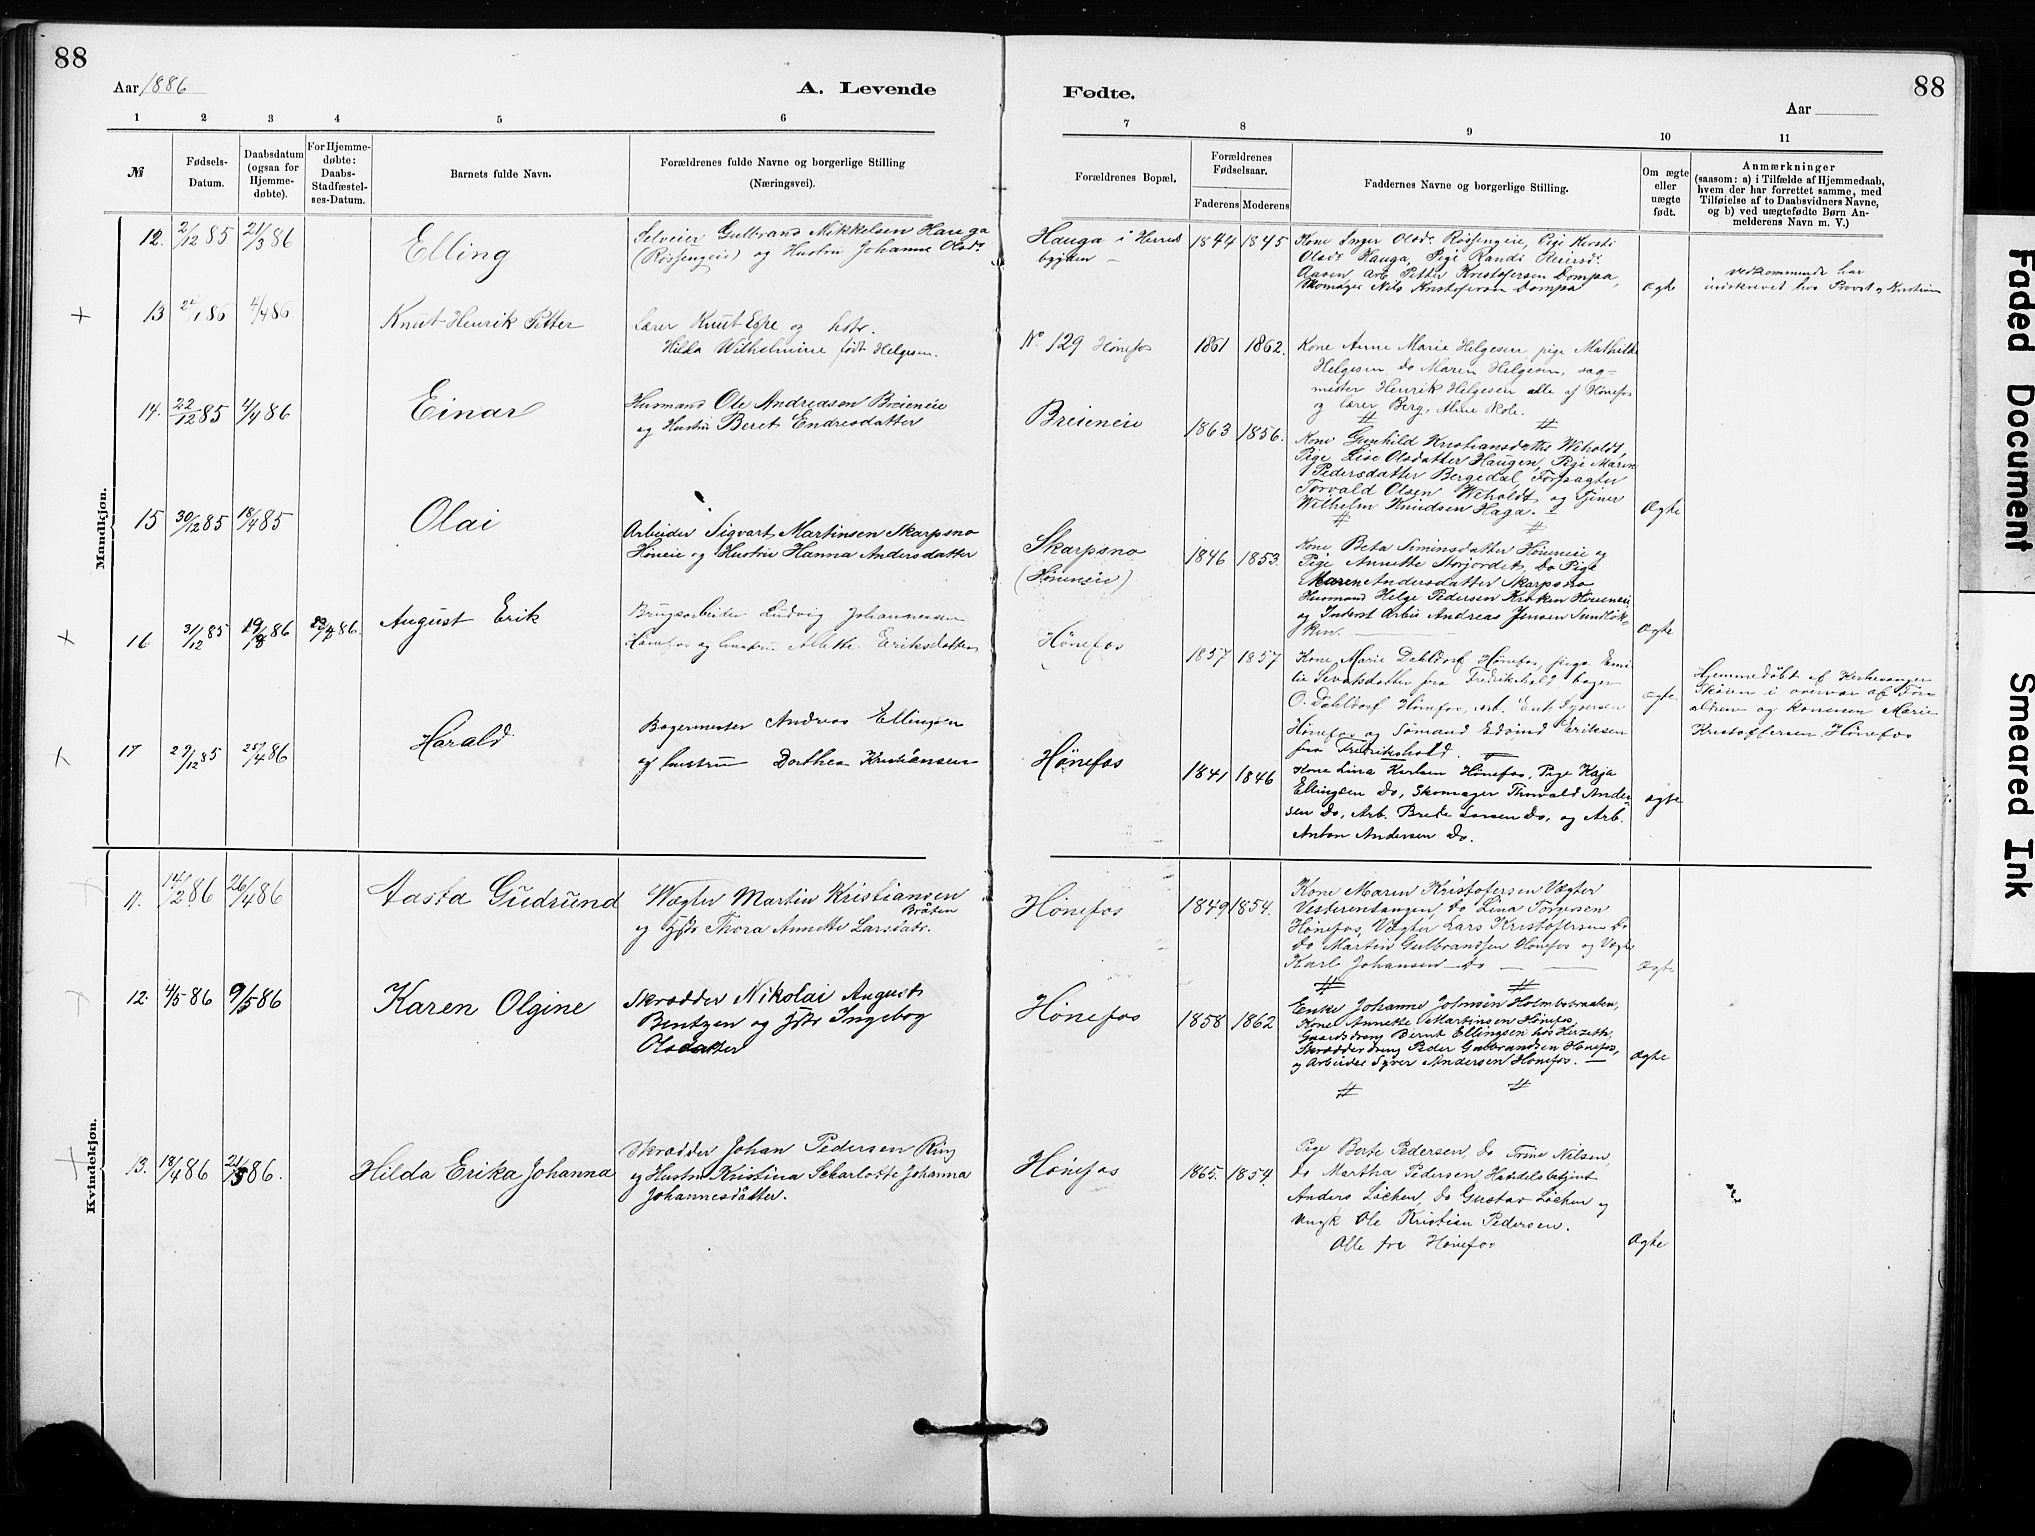 88
Aar 1886
A. Levende
1 2 3 4 5 6
№
Fødsels-
Datum.
Daabsdatum
(ogsaa for
Hjemme-
døbte).
For Hjemme-
døbte:
Daabs-
Stadfæstel-
ses-Datum.
Barnets fulde Navn.
Forældrenes fulde Navne og borgerlige Stilling
(Næringsvei).
Mandkjøn.
12. 2/12 85 21/3 86 Elling
Selveier Gulbrand Mikkelsen Hauga
(Røssengeie) og Hustru Johanne Olsdr
13 24/1 86 4/4 86 Knut Henrik Petter
Lærer Knut Espe og hstr.
Hilda Wilhelmine født Helgesen.
14. 22/12 85 4/4 86 Einar
Husmand Ole Andreasen Breieneie
og Hustru Beret Endresdatter
15 30/12 85 18/4 85 Olai
Arbeider Sigvart Martinsen Skarpsno
Høneie og Hustru Hanna Andersdatter
16 31/12 85 86 86. August Erik
Brugsarbeider Ludvig Johannessen
Hønefos og hustru Albette Eriksdatter
17 29/12 85 25/4 86 Harald
Bagermester Andreas Ellingsen
og hustru Dorthea Kristiansen
Kvindekjøn.
11. 14/2 86 26/4 86 Aasta Gudrund
Vægter Martin Kristiansen
Bråten
og Hstr Thora Annette Larsdatr.
12. 4/5 86 9/5 86 Karen Olgine
Skrædder Nikolai August
Bentzen og Hstr Ingebog
Olsdatter
13. 18/4 86 21/5 86. Hilda Erika Johanna
Skrædder Johan Pedersen Ring
og Hustru Kristina Scharlotte Johanna
Johannesdatter.
Fødte.
88
Aar
7 8 9 10 11
Forældrenes Bopæl.
Forældrenes
Fødselsaar.
Faderens Moderens
Faddernes Navne og borgerlige Stilling.
Om ægte
eller
uægte
født.
Anmærkninger
(saasom: a) i Tilfælde af Hjemmedaab,
hvem der har forrettet samme, med
Tilføielse af to Daabsvidners Navne,
og b) ved uægtefødte Børn An-
melderens Navn m. V.)
Hauga i Herred
bygden
1844 1845
Kone Inger Olsdr Røssengeie, Pige Kersti
Olsdr Hauga, Pige Randi
Aasen, Arb. Petter Kristofersen Dompa,
Skomager Nils Kristofersen Dompa
Ægte
vedkommende har
indskrevet hos Provst
No 129 Hønefos
1861 1862.
Kone Anne Marie Helgesen, pige Mathilde
Helgesen, do Maren Helgesen, sag-
mester Henrik Helgesen alle af Hønefos
og lærer Berg,
Breieneie
1863 1856.
Kone Gunhild Kristiansdatter Weholdt,
Pige Lise Olsdatter Haugen, Pige Maren
Pedersdatter Bergedal, Forpagter
Torvald Olsen Weholdt og Tjener
Wilhelm Knudsen Haga.
Ægte
Skarpsno
(Høneneie)
1846 1853.
Kone Beta Siminsdatter Høneneie og
Pige Annette Storjordet, Do Pige
Maren Andersdatter Skarpsno
Husmand Helge Pedersen Kroken Høneneie
og Inderst Arbr Andreas Jensen
Ægte
Hønefos
1857 1857
Kone Marie Dahldorf Hønefos, pige Emi
lie fra Fredrikshald, bager
O. Dahldorf Hønefos, Arb.
Hønefos og Sømand Edvind Eriksen
fra Fredrikshald.
ægte
Hjemmedøbt af Kirkesanger
Skøien i overvær af For
ældrene og konen Marie
Kristoffersen, Hønefos
Hønefos
1841 1846
Kone Lina Karlsen Hønefos, Pige Kaja
Ellingsen Do, Skomager Thorvald Ander
sen Do, Arb. Brede Larsen Do, og Arb.
Anton Andersen Do.
ægte
Hønefos
1849 1854.
Kone Maren Kristofersen Vægter
Vesterentangen, Do Lina Torgersen
Hønefos, Vægter Lars Kristofersen Do
Do Martin Gulbrandsen Hønefos og Vægter
Karl Johansen Do
Ægte
Hønefos
1858 1862
Enke Johanne Johnsen Holmbobraaten,
Kone Annette Martinsen Hønefos,
Gaardsdreng Bernt Ellingsen hos Herzeth,
Skrædderdreng Peder Gulbrandsen Hønefos,
og Arbeider Syver Andersen Hønefos.
Ægte
Hønefos
1865. 1854.
Pige Berte Pedersen, do Trine Nilsen,
do Martha Pedersen, Handelsbetjent
Anders Løcken, do Gustav Løcken og
Ungk Ole Kristian Pedersen.
Alle fra Hønefos
Ægte
Faded Document
Smeared Ink